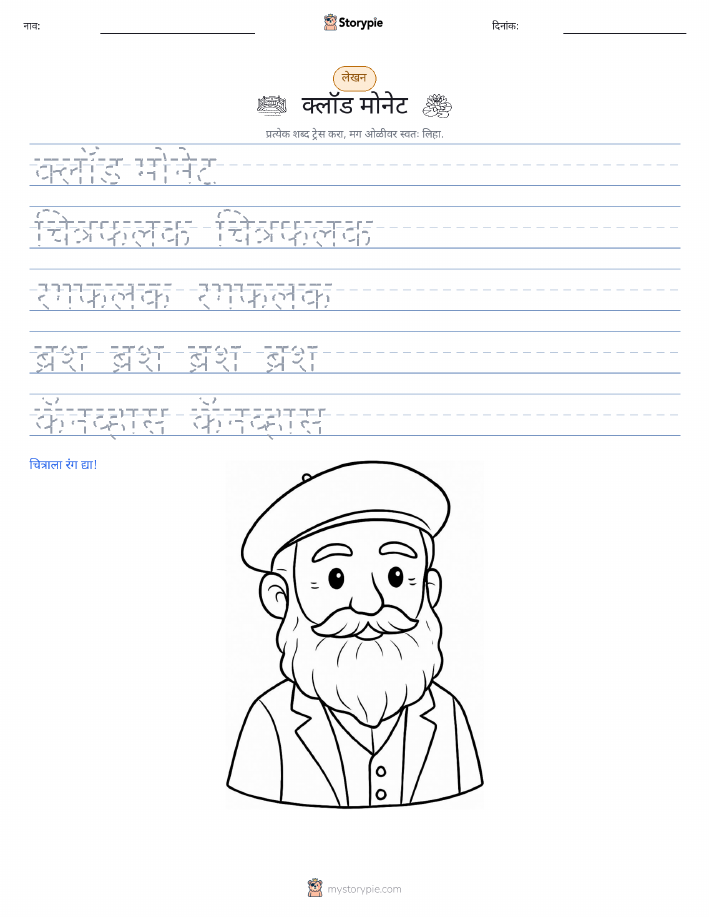 नाव: Storypie दिनांक:
लेखन
क्लॉड मोनेट
प्रत्येक शब्द ट्रेस करा, मग ओळीवर स्वतः लिहा.
क्लॉड मोनेट
चित्रफलक चित्रफलक
रंगफलक रंगफलक
ब्रश ब्रश ब्रश ब्रश
कॅनव्हास कॅनव्हास
चित्राला रंग द्या!
mystorypie.com